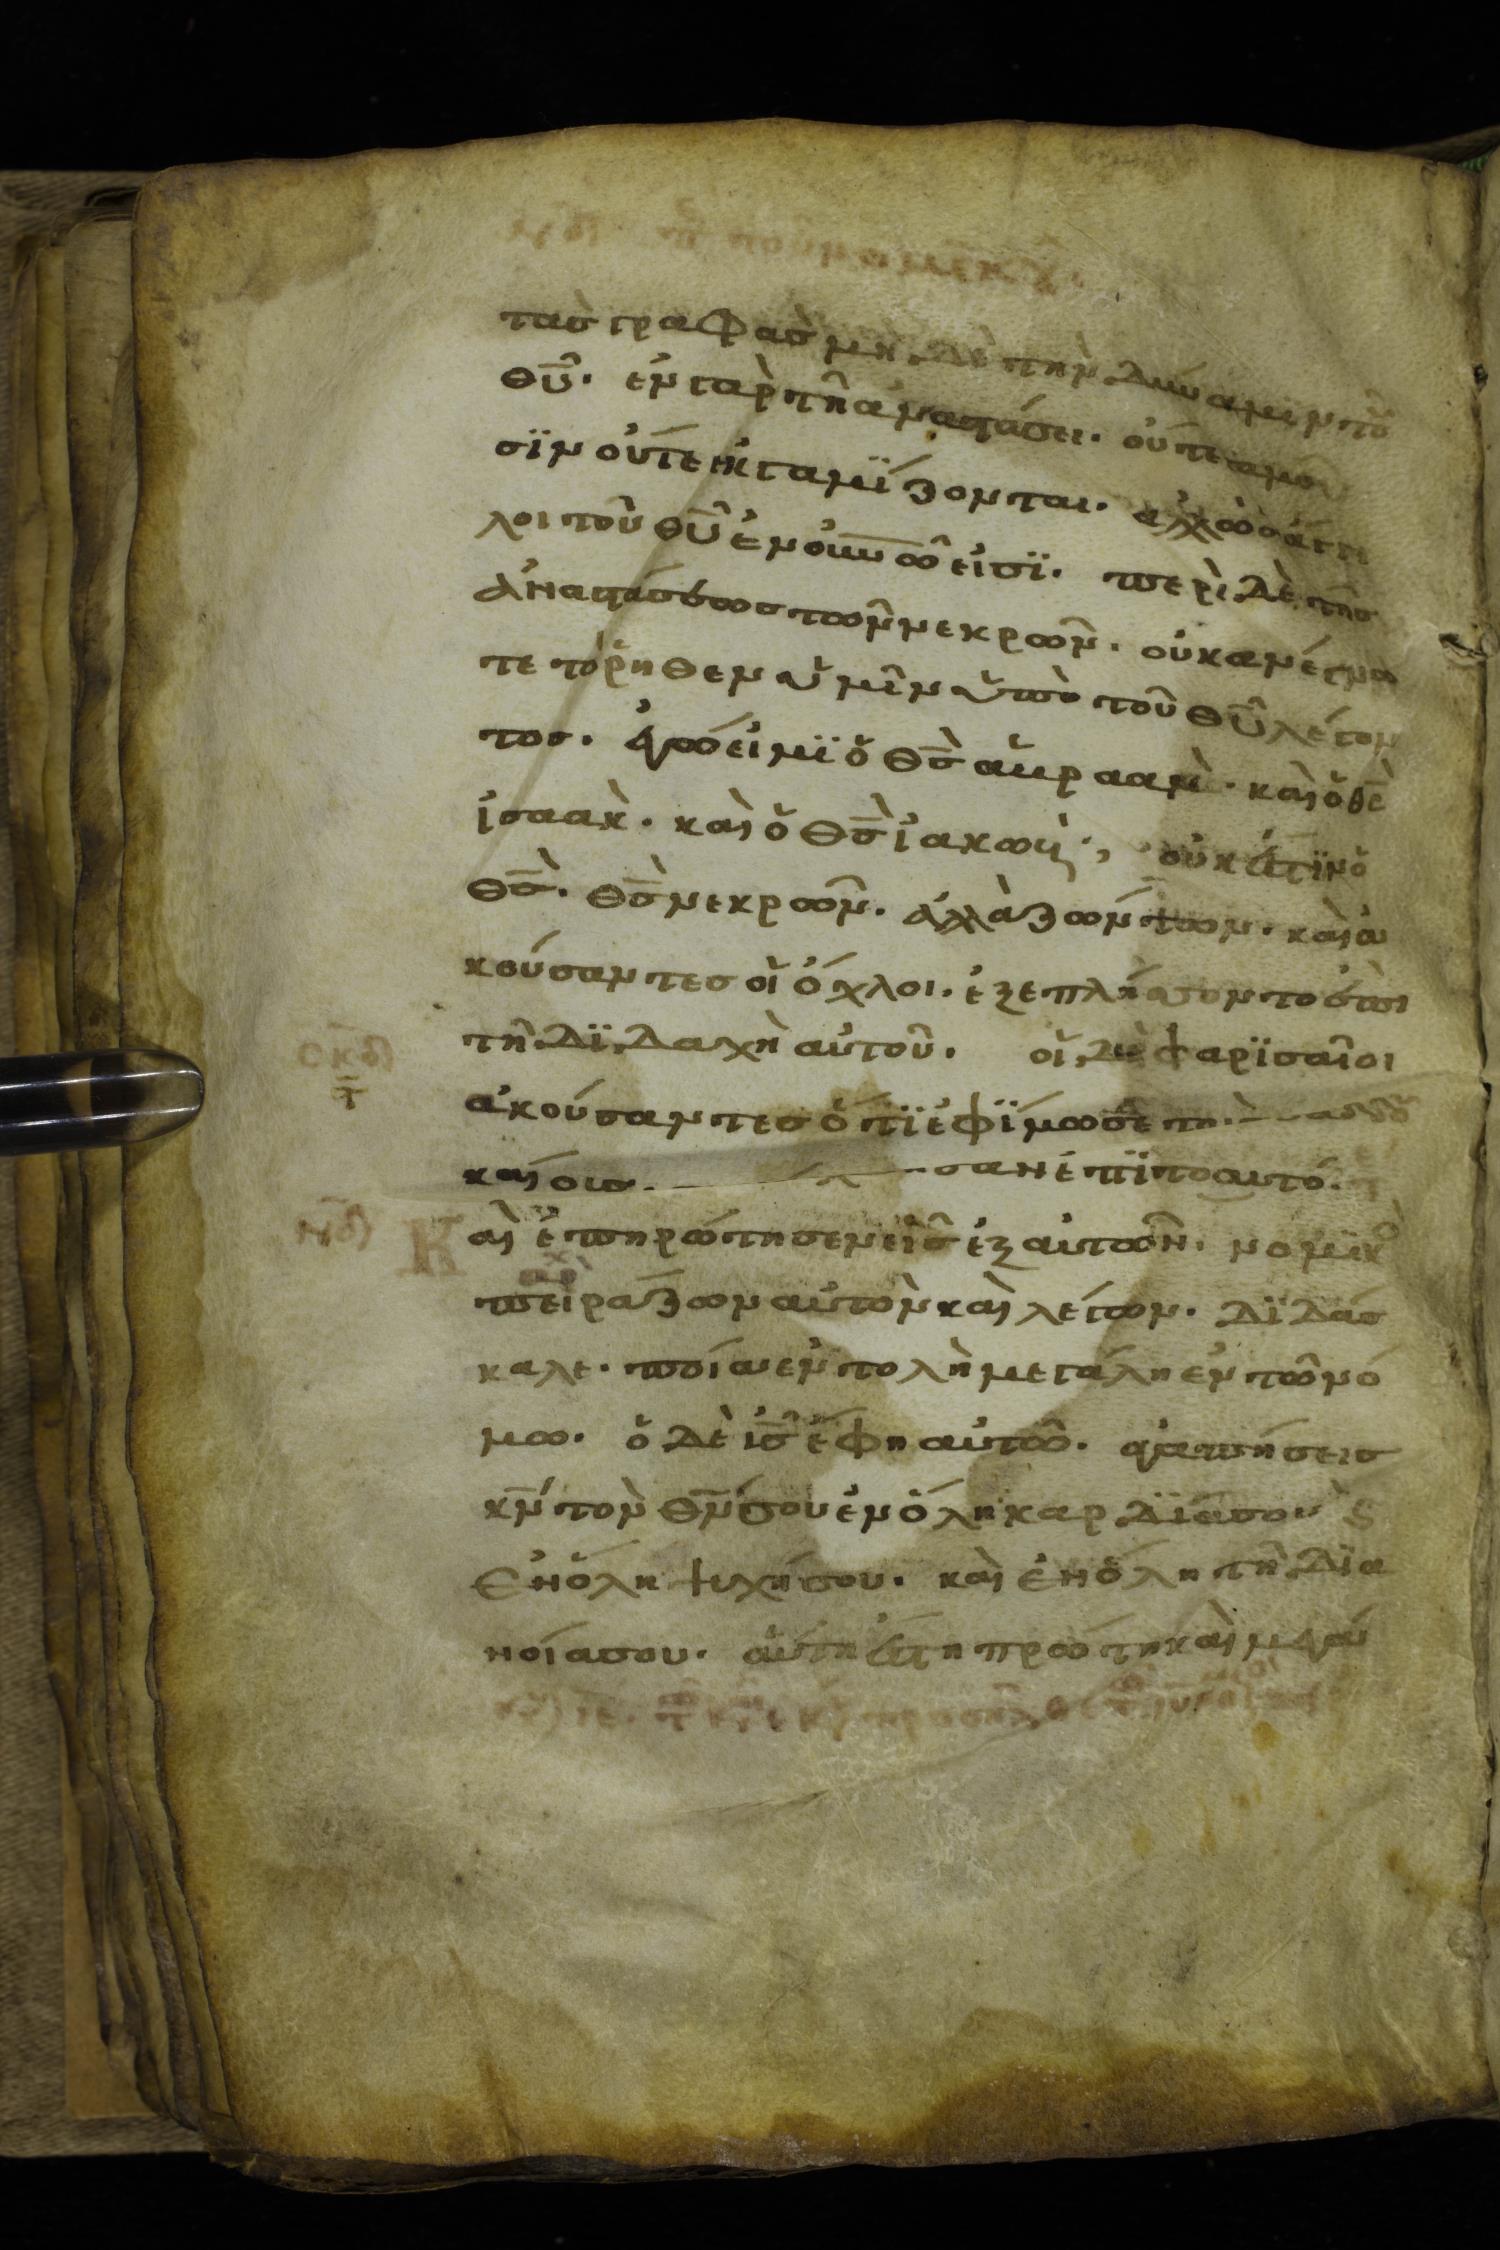 τασ γραφασ μὴ δὲ τὴν δύναμϊν τοῦ
θῦ. ἐν γαρ τῆ ἀναστάσει. οὔτε γαμοῦ
σϊν οὔτε ἐκγαμΐζονται. ἀλλ ὡσ ἄγγε
λοι τοῦ θῦ ἐν οὐνω εἰσΐ. περὶ δὲ τῆσ
ἀναστάσεωσ τῶν νεκρῶν. οὐκ ανέγνω
τε το ῥηθεν ὑμῖν ὑπὸ τοῦ θῦ λέγον
τοσ. ἐγώ εἰμϊ ὁ θσ ἀβρααμ. καὶ ὁ θσ
ἰσαακ. καὶ ὁ θσ ἰακωβ, οὐκ ἔστϊν ὁ
θσ. θσ νεκρῶν. ἀλλὰ ζώντων. καὶ ἀ
κούσαντεσ οἱ ὄχλοι. ἐξεπλήσσοντο ἐπι
τῆ δϊδαχῆ αὐτοῦ. οἱ δὲ φαρϊσαῖοι
σκδ
ακούσαντεσ ὅτϊ ἐφΐμωσε τοὺσ σαδδου
καίουσ συνήχθησαν ἐπϊ το αυτό.
Καὶ ἐπηρώτησεν εἷσ ἐξ αὐτῶν. νομϊκὸ
πειράζων αὐτὸν καὶ λέγων. δϊδάσ
καλε. ποία ἐντολὴ μεγάλη ἐν τῶ νό
μω. ὁ δὲ ισ ἔφη αὐτῶ. ἀγαπήσεισ
κν τὸν θν σου ἐν ὅλη καρδΐα σου ϛ
ἐν ὅλη ψυχῆ σου. καὶ ἐν ὅλη τῆ δϊα
νοία σου. αὕτη ἔστη πρώτη καὶ μεγά